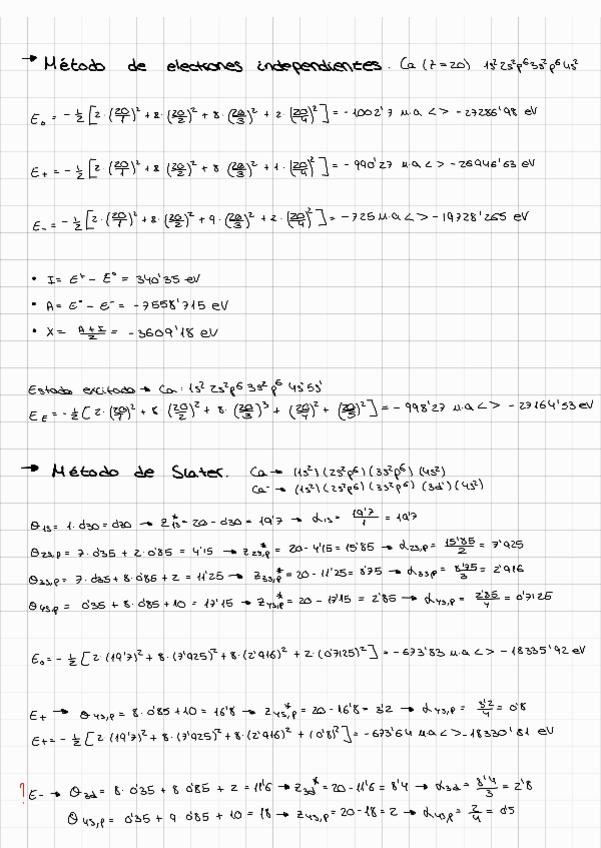 → Método de electrones independientes. Ca (z=20) 1s² 2s² p⁶ 3s² p⁶ 4s²
E₀ = - 1/2 [2 · (20/1)² + 8 · (20/2)² + 8 · (20/3)² + 2 · (20/4)²] = - 1002'7 u.a <> - 27286'98 eV
E₊ = - 1/2 [2 · (20/1)² + 8 (20/2)² + 8 (20/3)² + 1 · (20/4)²] = - 990'27 u.a <> - 26946'63 eV
E₋ = - 1/2 [2 · (20/1)² + 8 · (20/2)² + 9 · (20/3)² + 2 · (20/4)²] = - 725 u.a <> - 19728'265 eV
• I = E⁺ - E⁰ = 340'35 eV
• A = E⁰ - E⁻ = - 7558'715 eV
• X = (A+I)/2 = - 3609'18 eV
Estado excitado → Ca: 1s² 2s² p⁶ 3s² p⁶ 4s¹ 5s¹
E_E = - 1/2 [2 · (20/1)² + 8 (20/2)² + 8 · (20/3)³ + (20/4)² + (20/5)²] = - 998'27 u.a <> - 27164'53 eV
→ Método de Slater. Ca → (1s²) (2s² p⁶) (3s² p⁶) (4s²)
Ca⁻ → (1s²) (2s² p⁶) (3s² p⁶) (3d¹) (4s²)
θ1s = 1 · 0'30 = 0'30 → Z1s* = 20 - 0'30 = 19'7 → α1s = 19'7/1 = 19'7
θ2s,p = 7 · 0'35 + 2 · 0'85 = 4'15 → Z2s,p* = 20 - 4'15 = 15'85 → α2s,p = 15'85/2 = 7'925
θ3s,p = 7 · 0'35 + 8 · 0'85 + 2 = 11'25 → Z3s,p* = 20 - 11'25 = 8'75 → α3s,p = 8'75/3 = 2'916
θ4s,p = 0'35 + 8 · 0'85 + 10 = 17'15 → Z4s,p* = 20 - 17'15 = 2'85 → α4s,p = 2'85/4 = 0'7125
E₀ = - 1/2 [2 (19'7)² + 8 · (7'925)² + 8 · (2'916)² + 2 · (0'7125)²] = - 673'83 u.a <> - 18335'92 eV
E₊ → θ4s,p = 8 · 0'85 + 10 = 16'8 → Z4s,p* = 20 - 16'8 = 3'2 → α4s,p = 3'2/4 = 0'8
E₊ = - 1/2 [2 (19'7)² + 8 · (7'925)² + 8 · (2'916)² + (0'8)²] = - 673'64 u.a <> - 18330'81 eV
? E₋ → θ3d = 8 · 0'35 + 8 0'85 + 2 = 11'6 → Z3d* = 20 - 11'6 = 8'4 → α3d = 8'4/3 = 2'8
θ4s,p = 0'35 + 9 0'85 + 10 = 18 → Z4s,p = 20 - 18 = 2 → α4s,p = 2/4 = 0'5